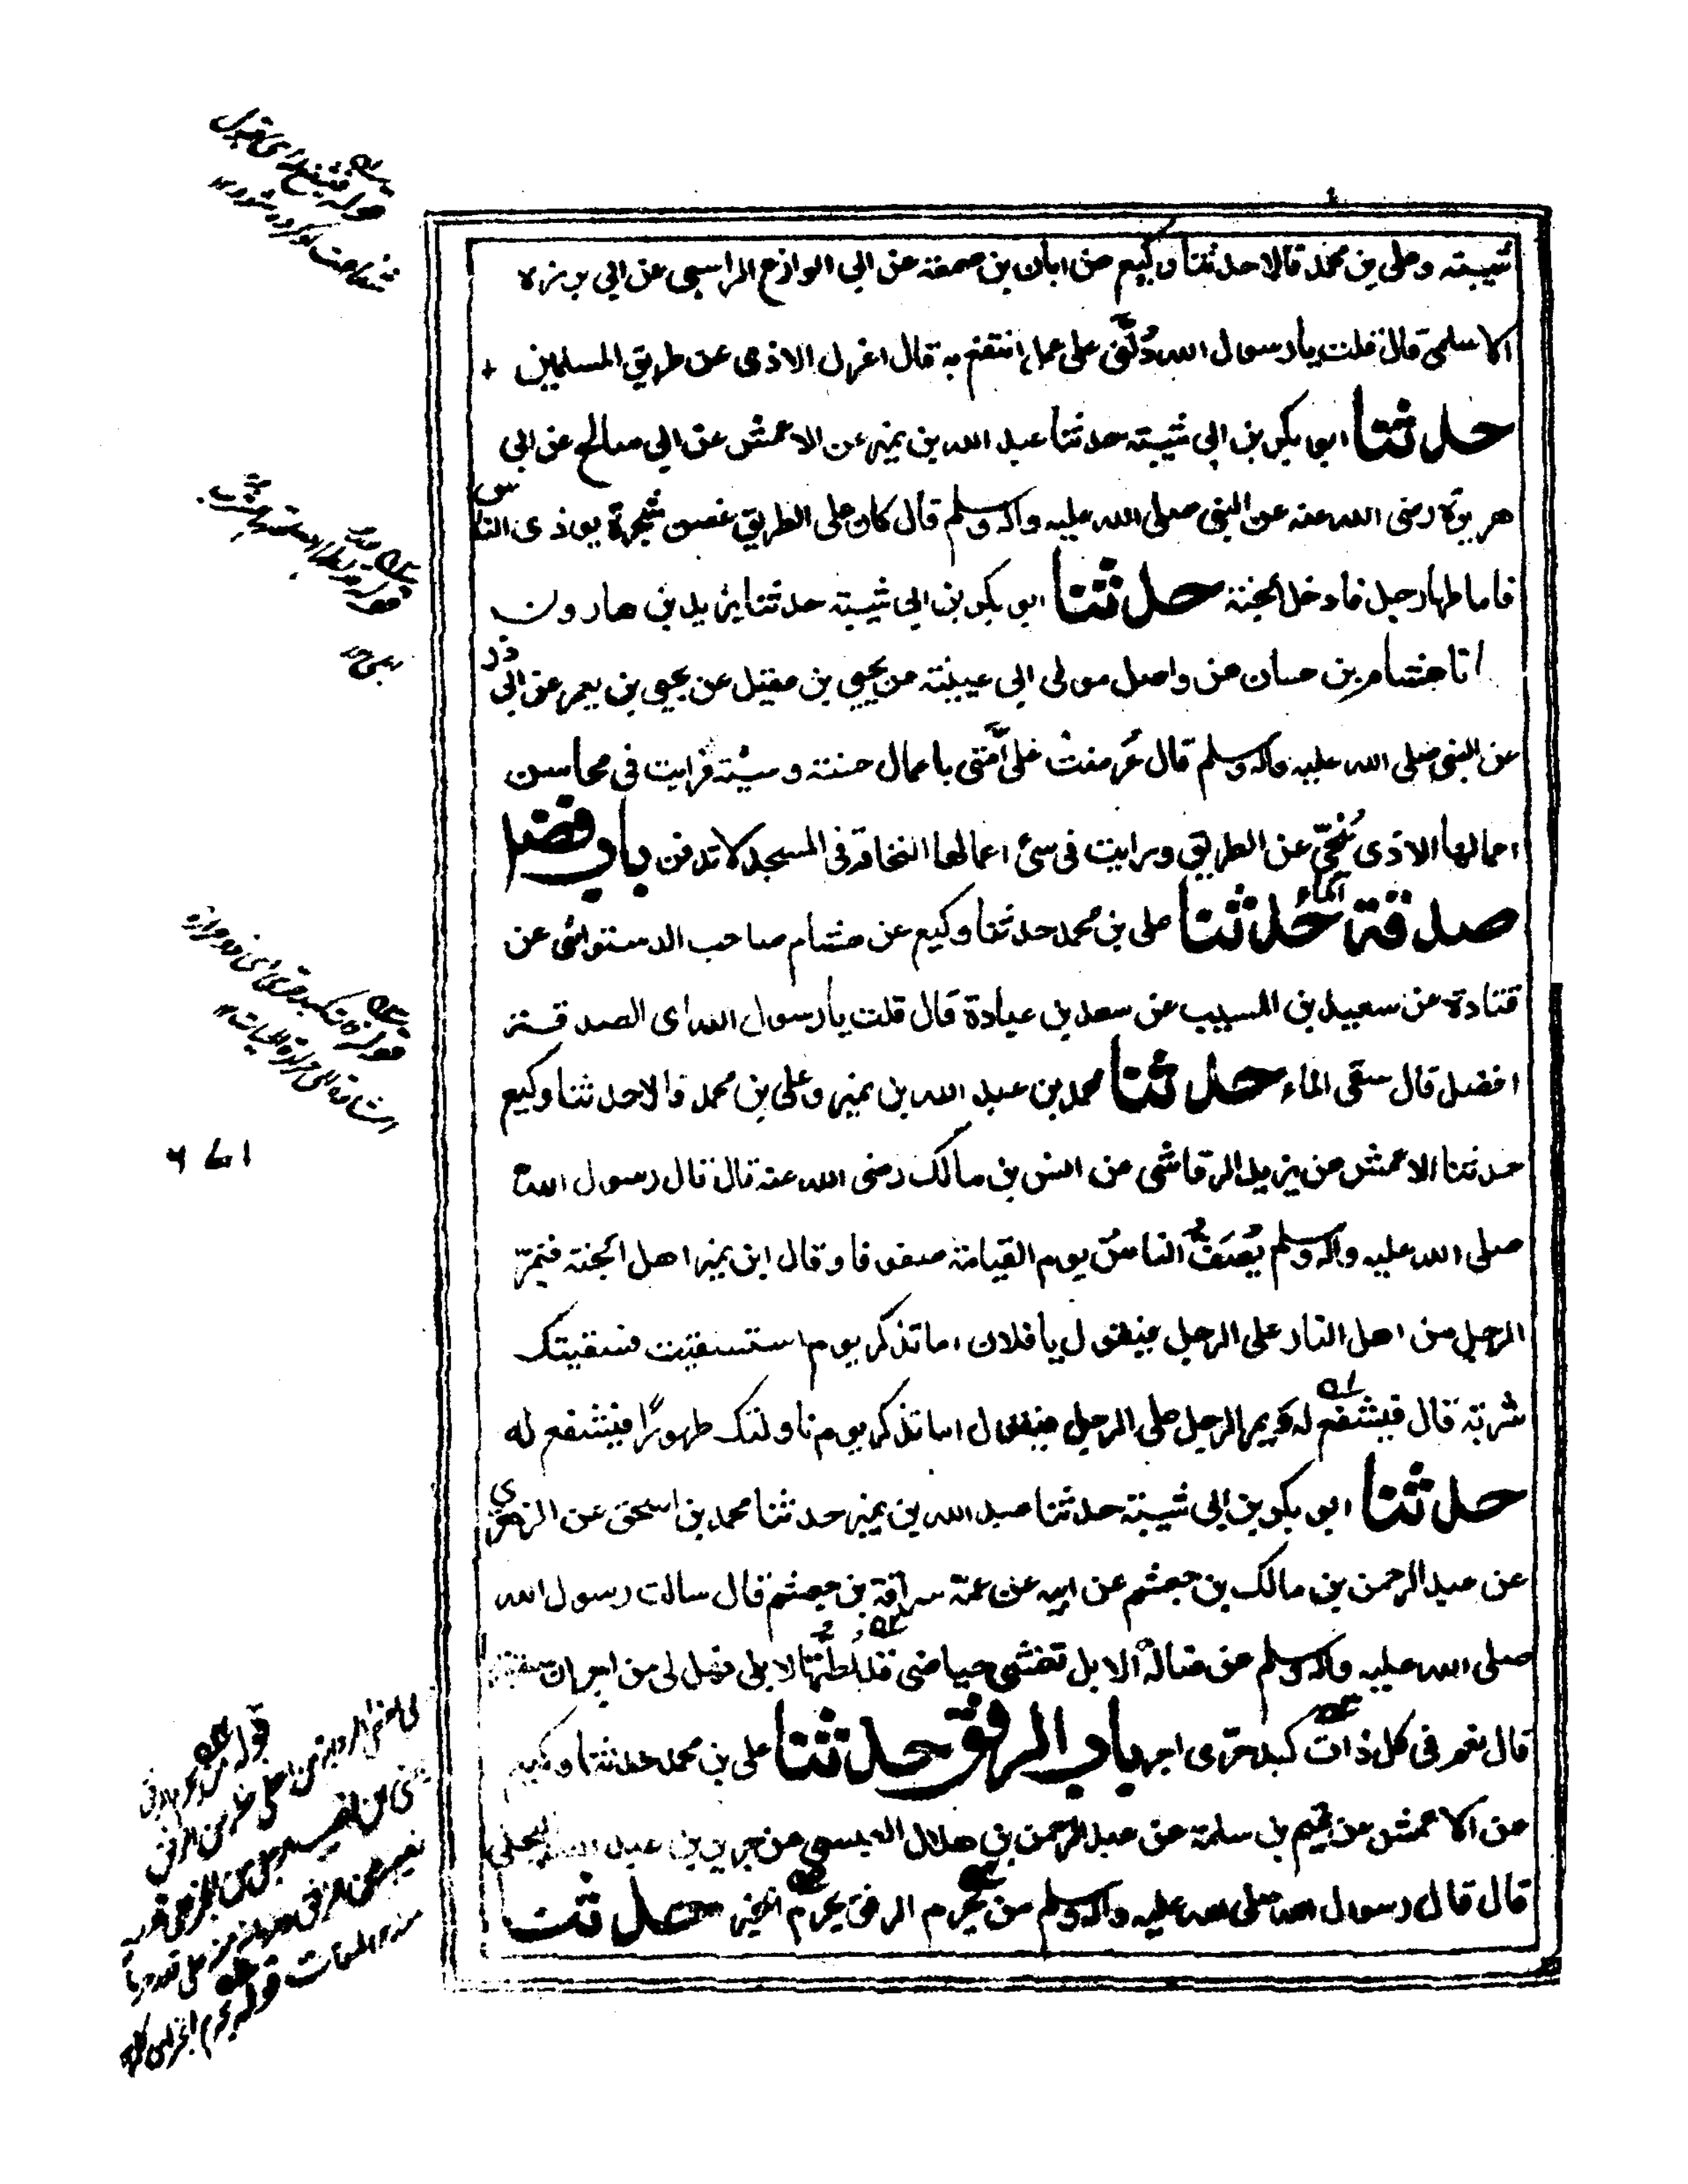 شيبته وعلى بن محمد قالا حدثنا وكيع عن ابان بن صمعته عن ابى الوازع الراسبى عن ابى برزه
الاسلمى قال قلت يا رسول الله دُلَّنى على عمل انتفع به قال اعزل الاذى عن طريق المسلمين
حدثنا ابو بكر بن ابى شيبته حدثنا عبد الله بن نمير عن الاعمش عن ابى صالح عن ابى
هريرة رضى الله عنه عن النبى صلى الله عليه واله وسلم قال كان على الطريق غصن شجرة يوذى الناس
فاماطها رجل فادخل الجنة حدثنا ابو بكر بن ابى شيبته حدثنا يزيد بن هارون
انا هشام بن حسان عن واصل مولى ابى عيينته عن يحيى بن عقيل عن يحيى بن يعمر عن ابى ذر
عن النبى صلى الله عليه واله وسلم قال عُرضت على اُمّتى باعمال حسنته وسيئة فرايت فى محاسن
اعمالها الاذى يُنحّى عن الطريق ورايت فى سئ اعمالها النخاعة فى المسجد لا تدفن باب فضل
صدقة الماء حدثنا على بن محمد حدثنا وكيع عن هشام صاحب الدستوائى عن
قتادة عن سعيد بن المسيب عن سعد بن عبادة قال قلت يا رسول الله اى الصدقة
افضل قال سقى الماء حدثنا محمد بن عبد الله بن نمير وعلى بن محمد قالا حدثنا وكيع
حدثنا الاعمش عن يزيد الرقاشى عن انس بن مالك رضى الله عنه قال قال رسول الله
صلى الله عليه واله وسلم يُصَفُّ الناسُ يوم القيامة صفوفا وقال ابن نمير اهل الجنة فيمرّ
الرجل من اهل النار على الرجل فيقول يا فلان اما تذكر يوم استسقيت فسقيتك
شربة قال فيشفع له ويمر الرجل على الرجل فيقول اما تذكر يوم ناولتك طهورًا فيشفع له
حدثنا ابو بكر بن ابى شيبة حدثنا عبد الله بن نمير حدثنا محمد بن اسحق عن الزهرى
عن عبد الرحمن بن مالك بن جعشم عن ابيه عن عمّه سراقة بن جعشم قال سالت رسول الله
صلى الله عليه واله وسلم عن ضالة الابل تغشى حياضى قد لُطتُّها لابلى فهل لى من اجر ان سقيتها
قال نعم فى كل ذات كبد حرّى اجر باب الرفق حدثنا على بن محمد حدثنا وكيع
عن الاعمش عن تميم بن سلمة عن عبد الرحمن بن هلال العبسى عن جرير بن عبد الله البجلى
قال قال رسول الله صلى الله عليه واله وسلم من يحرم الرفق يحرم الخير حدثنا